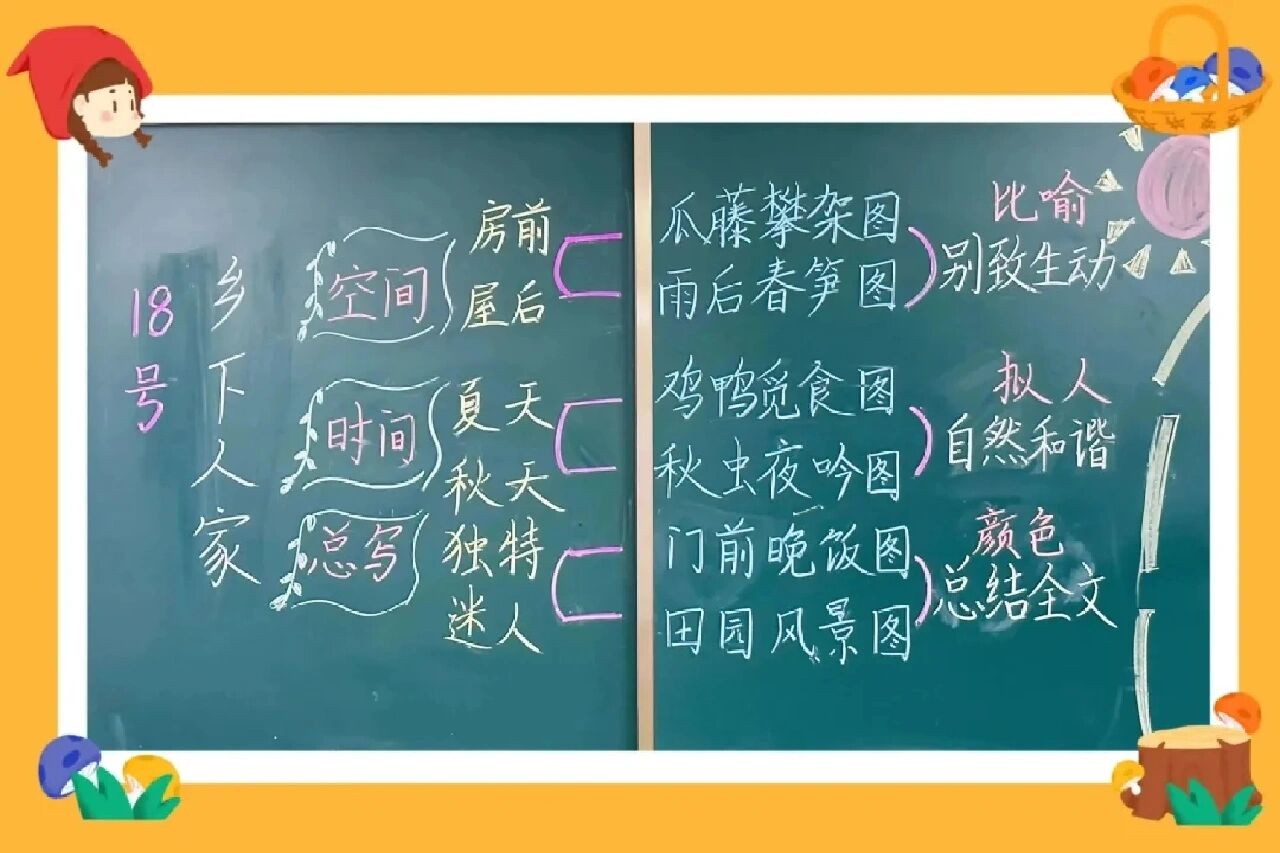 18号
乡下人家
空间
房前
屋后
瓜藤攀架图
雨后春笋图
比喻
别致生动
时间
夏天
秋天
鸡鸭觅食图
秋虫夜吟图
拟人
自然和谐
总写
独特
迷人
门前晚饭图
田园风景图
颜色
总结全文